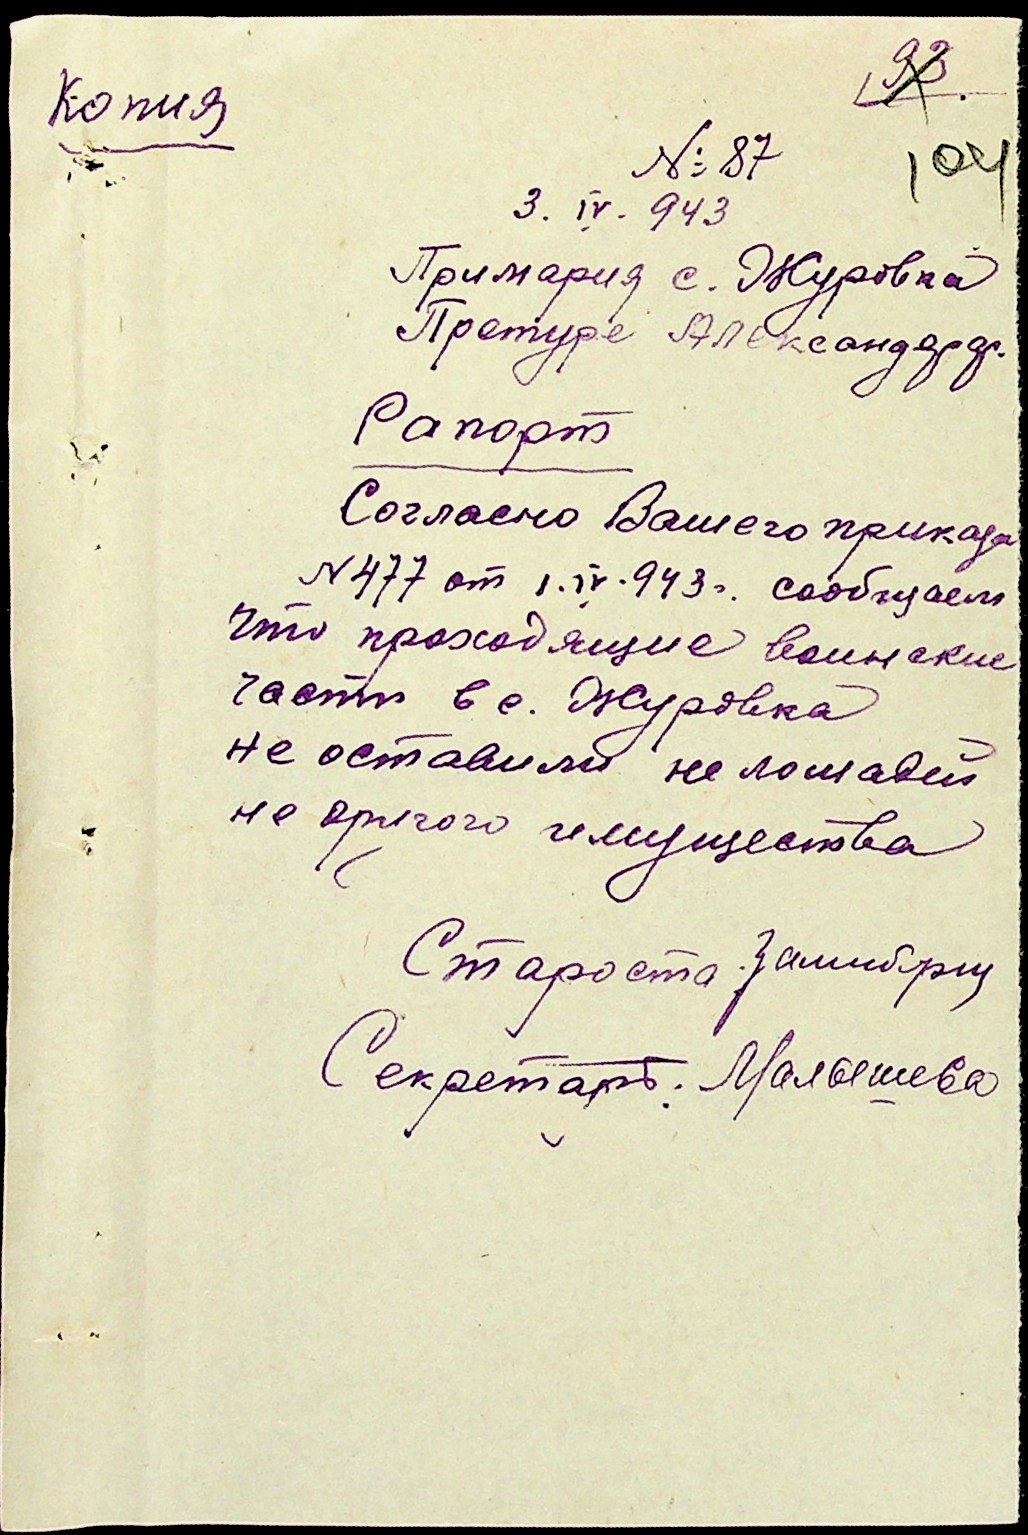 Копия
93.
104
№ 87
3. IV. 943
Примария с. Журовка
Претуре Александрдр.
Рапорт
Согласно Вашего приказа
N 477 от 1. IV. 943 г. сообщаем
что проходящие воинские
части в с. Журовка
не оставили не лошадей
не другого имущества
Староста
Секретарь: Малышева